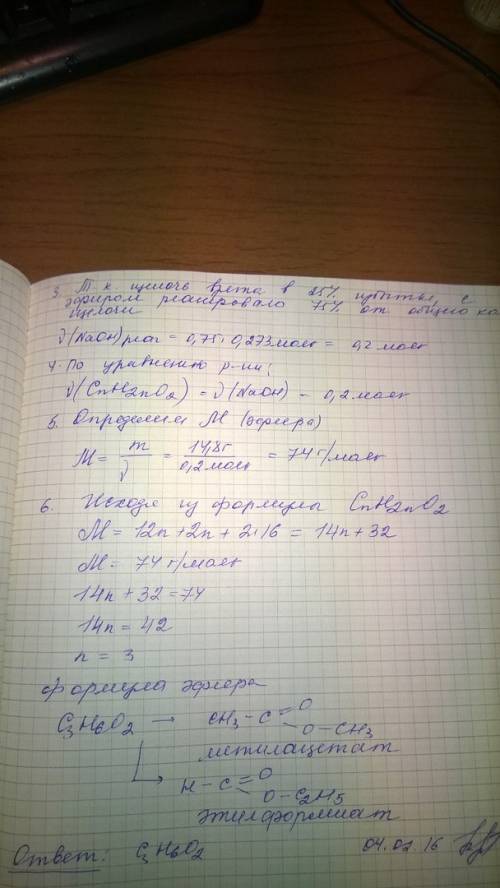 3. Т.к. щелочь взята в 25% избытке, с
эфиром реагировало 75% от общего
щелочи
ν(NaOH)реаг = 0,75·0,273моль = 0,2 моль
4. По уравнению р-ции:
ν(CnH2nO2) = ν(NaOH) = 0,2моль
5. Определим M (эфира)
M = m/ν = 14,8г/0,2моль = 74 г/моль
6. Исходя из формулы CnH2nO2
M = 12n + 2n + 2·16 = 14n + 32
M = 74 г/моль
14n + 32 = 74
14n = 42
n = 3
формула эфира
C3H6O2 → CH3 – C = O
O – CH3
метилацетат
H – C = O
O – C2H5
этилформиат
Ответ: C3H6O2 04.02.16